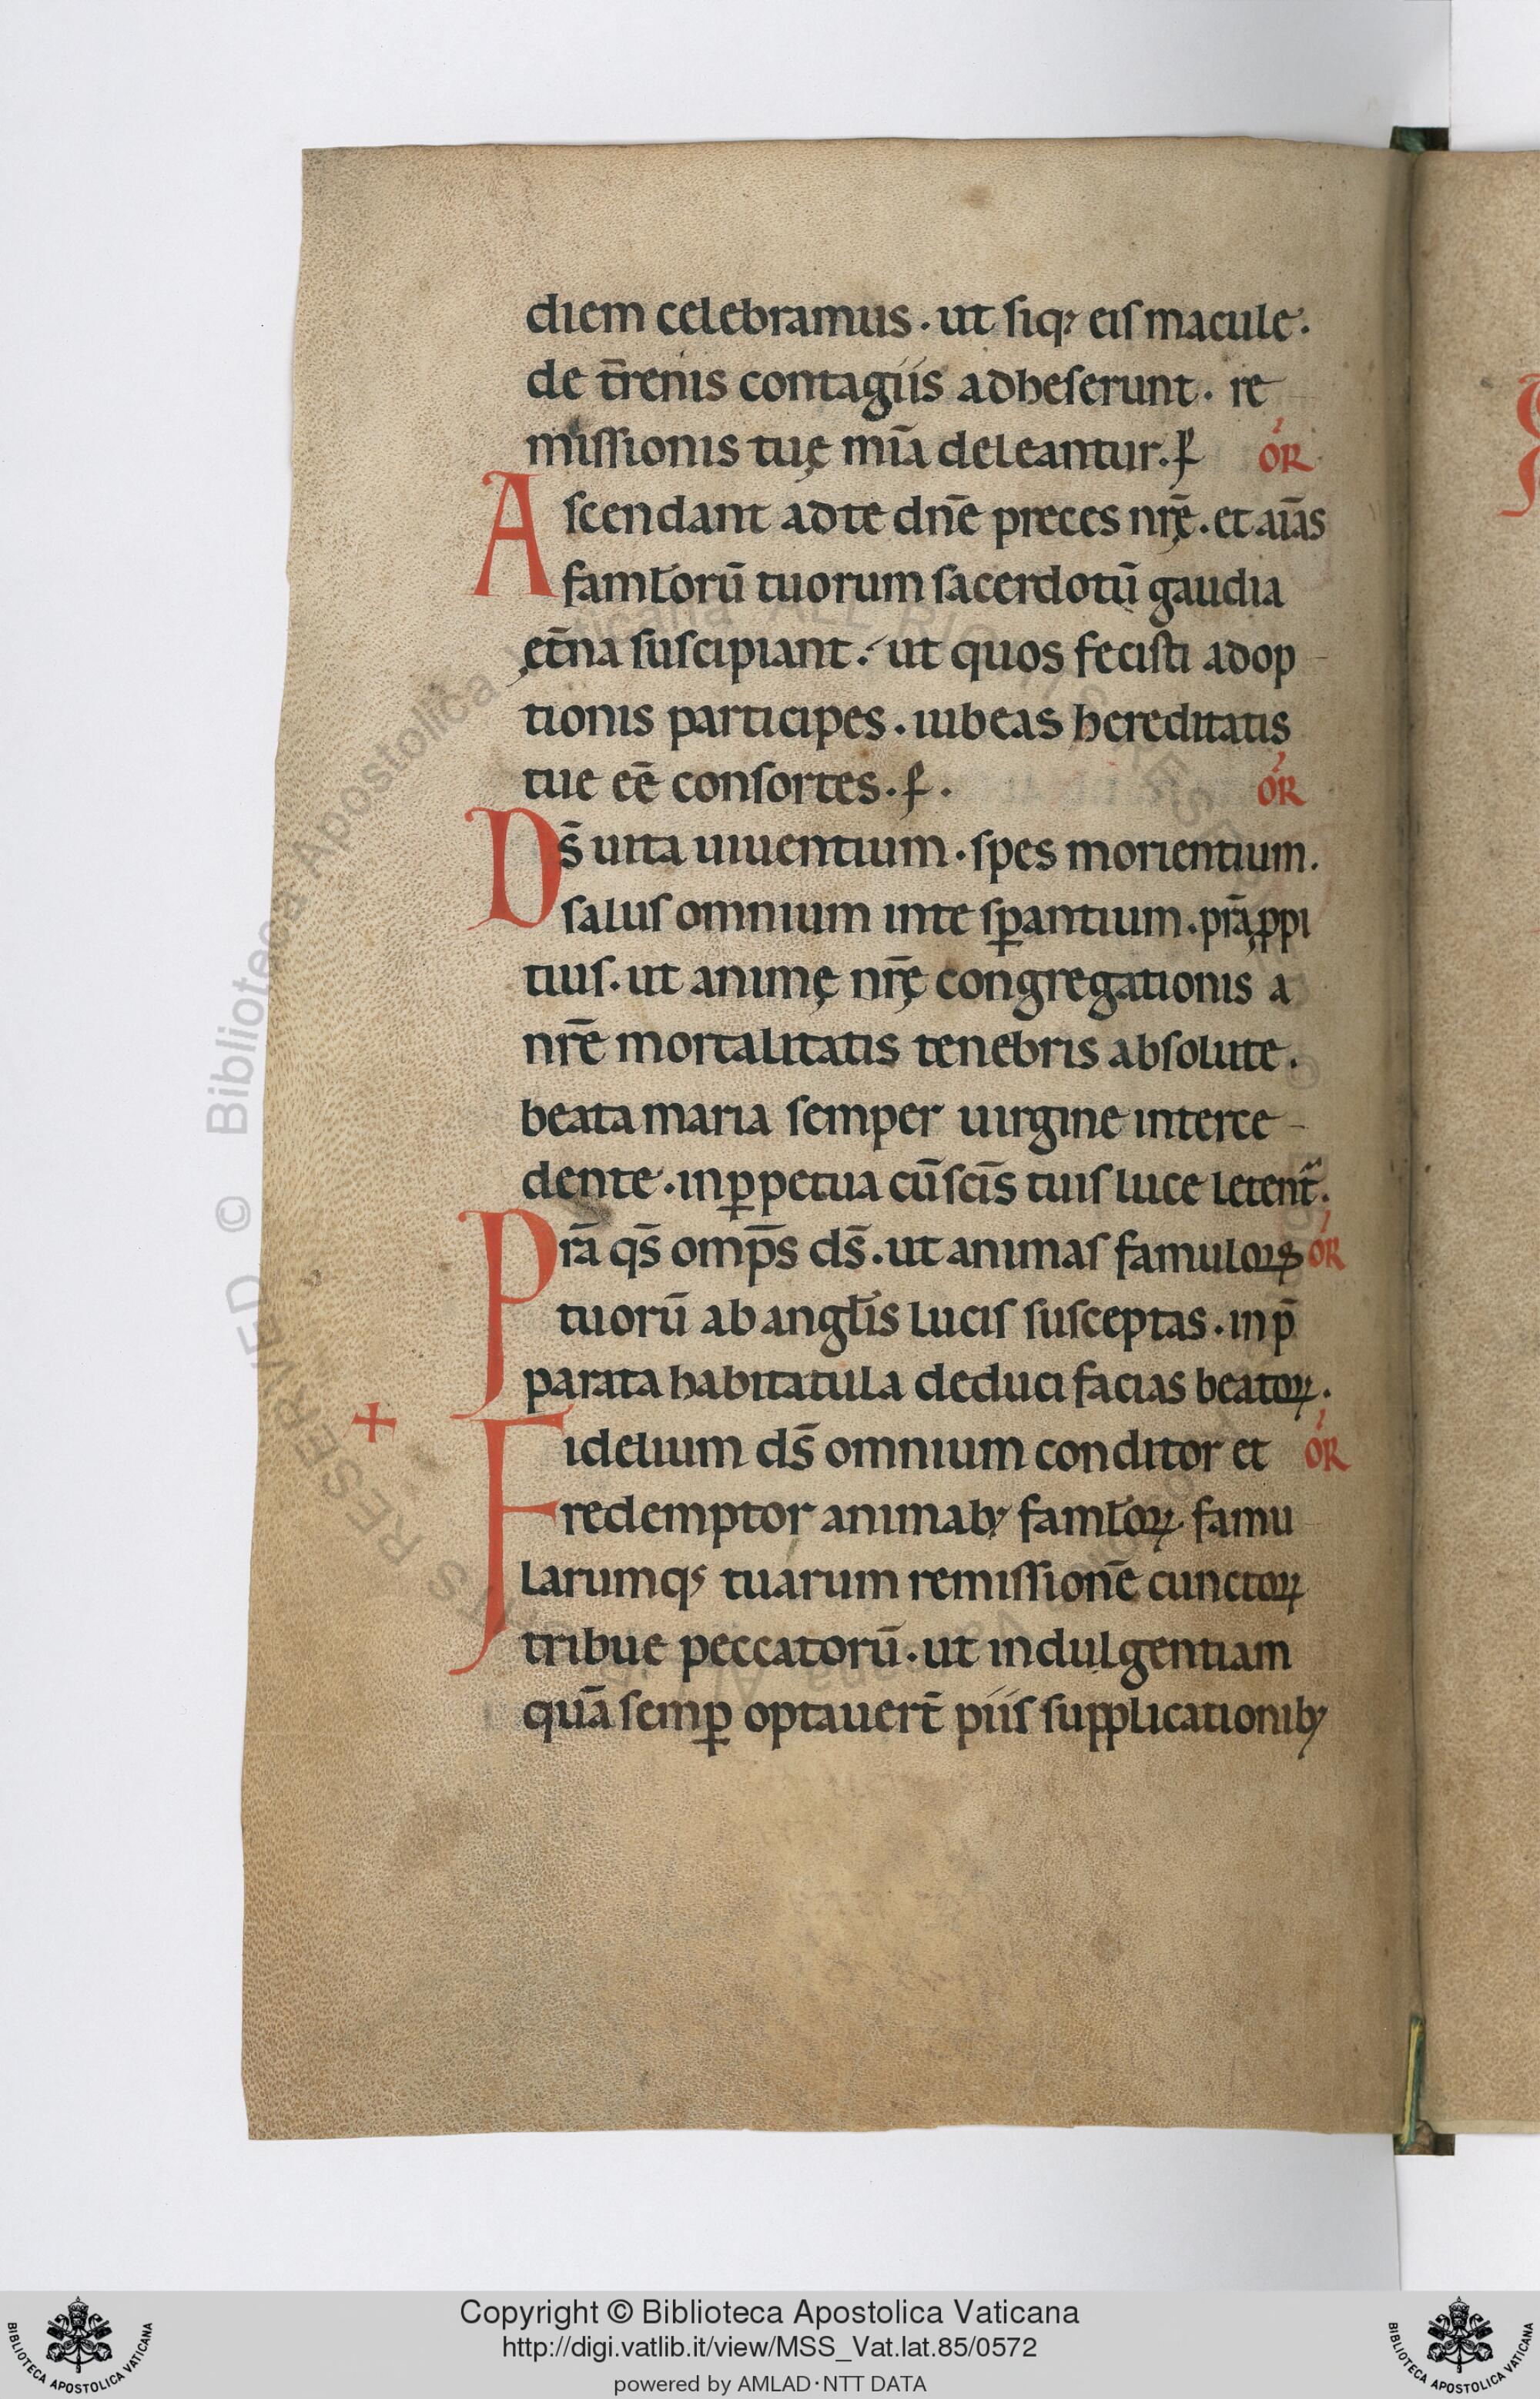 diem celebramus. ut siq; eis macule.
de t̄renis contagiis adheserunt. re
missionis tuę mīa deleantur. ꝑ or̄
Ascendant ad te dn̄e preces nr̄ę. et aīas
famłorū tuorum sacerdotū gaudia
ęt̄na suscipiant. ut quos fecisti adop-
tionis participes. iubeas hereditatis
tue eē consortes. ꝑ. or̄
Ds̄ uita uiuentium. spes morientium.
salus omnium in te sꝑantium. pr̄a ꝓpi
tius. ut animę nr̄ę congregationis a
nr̄e mortalitatis tenebris absolute.
beata maria semper uirgine interce-
dente. in ꝑpetua cū sc̄is tuis luce letent̄.
Pr̄a qs̄ omp̄s ds̄. ut animas famuloꝝ or̄
tuorū ab angl̄is lucis susceptas. in p̄
parata habitatula deduci facias beatoꝝ.
+ Fidelium ds̄ omnium conditor et or̄
redemptor animab; famłoꝝ famu
larumq; tuarum remissionē cunctoꝝ
tribue peccatorū. ut indulgentiam
quā semꝑ optauert̄ piis supplicationib;
© Biblioteca Apostolica Vaticana ALL RIGHTS RESERVED
Copyright © Biblioteca Apostolica Vaticana
http://digi.vatlib.it/view/MSS_Vat.lat.85/0572
powered by AMLAD·NTT DATA
BIBLIOTECA APOSTOLICA VATICANA
BIBLIOTECA APOSTOLICA VATICANA